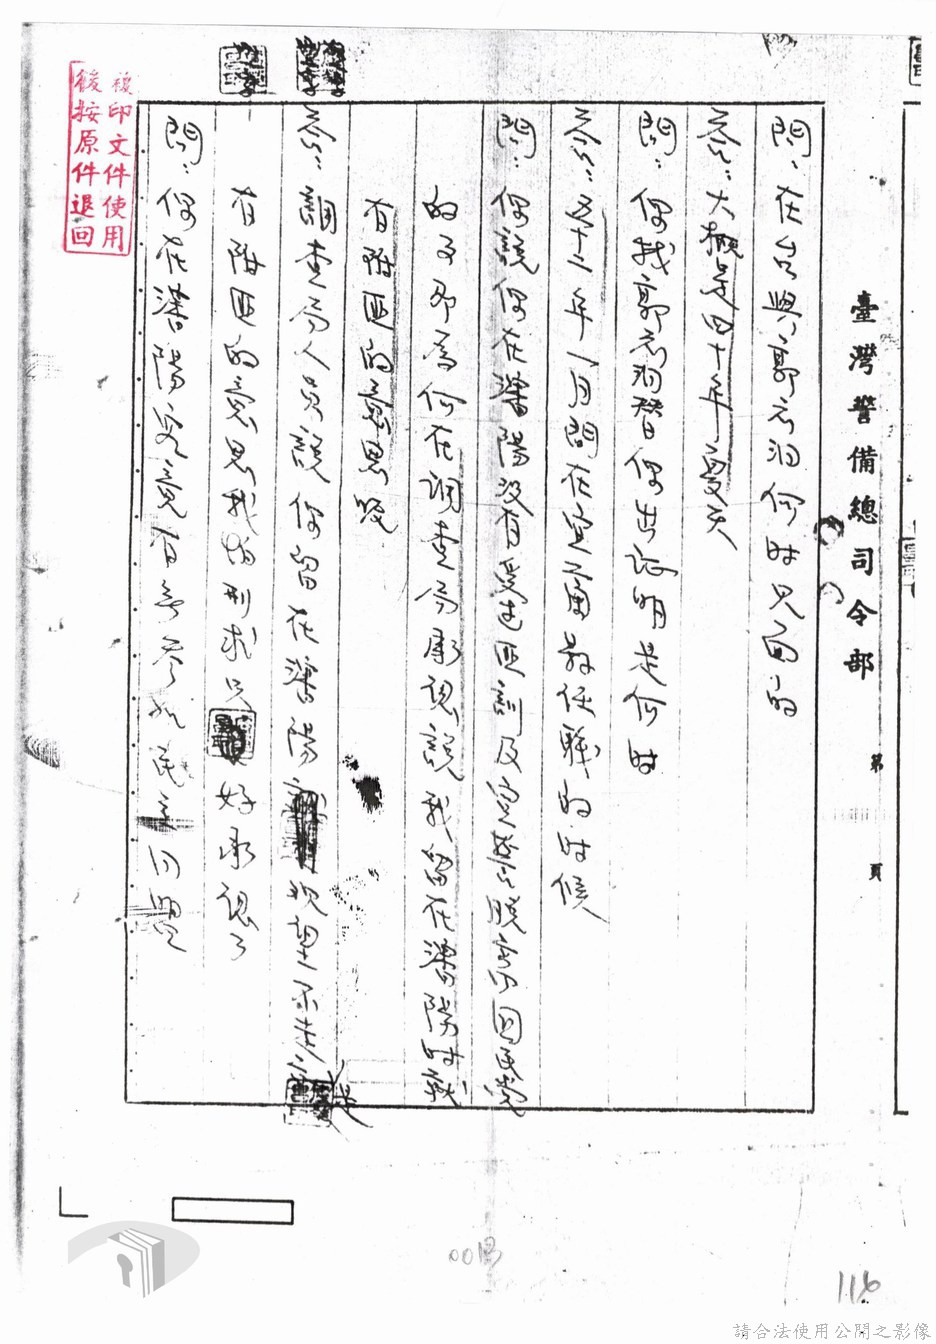 臺灣警備總司令部
第 頁
問：在台與郭志洄何時見面的
答：大概是四十年夏天
問：你找郭志洄替你出証明是何時
答：五十二年一月間在宜蘭教任職的時候
問：你說你在瀋陽沒有受過匪訓及寫替脫離國民黨
的文那為何在調查局承認說我留在瀋陽時就
有附匪的意思呢
答：調查局人員說你留在瀋陽觀望不走就是
有附匪的意思我怕刑求只好承認了
問：你在瀋陽究竟有無參加民主同盟
複印文件使用
後按原件退回
0013
116
請合法使用公開之影像